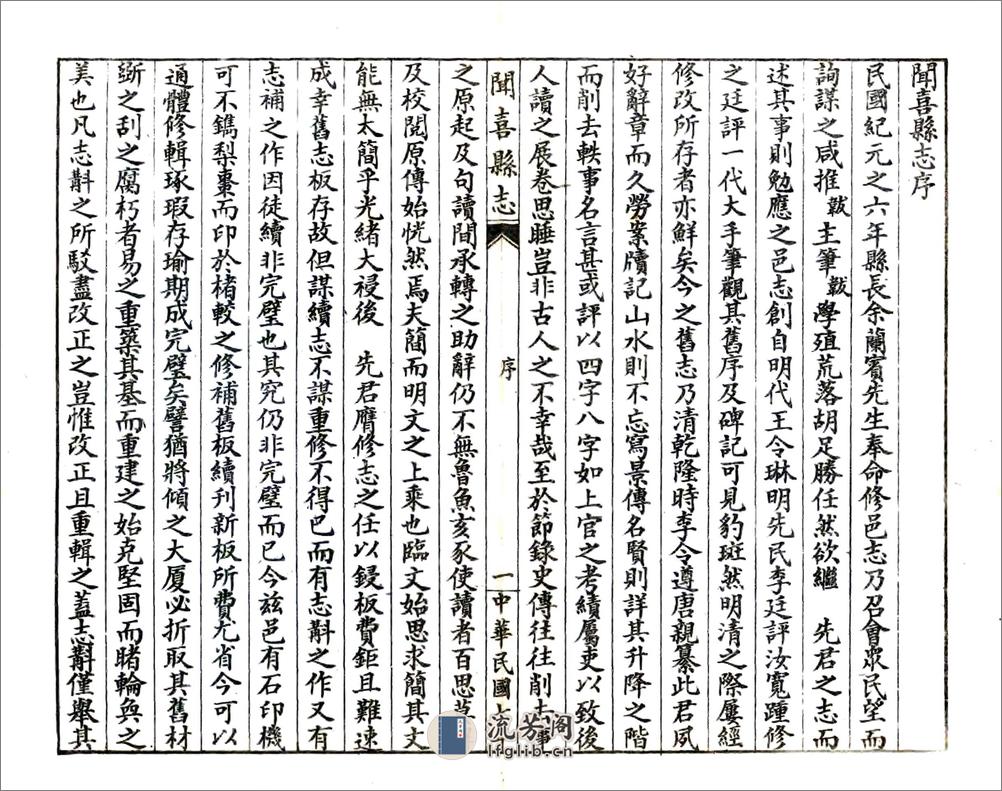 聞喜縣志序
民國紀元之六年縣長余蘭賓先生奉命修邑志乃召會眾民望而
詢謀之咸推 韍主筆 韍學殖荒落胡足勝任然欲繼 先君之志而
述其事則勉應之邑志創自明代王令琳明先民李廷評汝寬踵修
之廷評一代大手筆觀其舊序及碑記可見豹斑然明清之際屢經
修改所存者亦鮮矣今之舊志乃清乾隆時李令遵唐親纂此君夙
好辭章而久勞案牘記山水則不忘寫景傳名賢則詳其升降之階
而削去軼事名言甚或評以四字八字如上官之考績屬吏以致後
人讀之展卷思睡豈非古人之不幸哉至於節錄史傳往往削去事
聞喜縣志
序
一
中華民國七
之原起及句讀間承轉之助辭仍不無魯魚亥豕使讀者百思莫
及校閱原傳始恍然焉夫簡而明文之上乘也臨文始思求簡其文
能無太簡乎光緒大祲後 先君膺修志之任以鋟板費鉅且難速
成幸舊志板存故但謀續志不謀重修不得已而有志斠之作又有
志補之作因徒續非完璧也其究仍非完璧而已今茲邑有石印機
可不鐫梨棗而印於楮較之修補舊板續刊新板所費尤省今可以
通體修輯琢瑕存瑜期成完璧矣譬猶將傾之大厦必折取其舊材
斵之刮之腐朽者易之重築其基而重建之始克堅固而睹輪奐之
美也凡志斠之所駁盡改正之豈惟改正且重輯之蓋志斠僅舉其
流芳閣
lfglib.cn